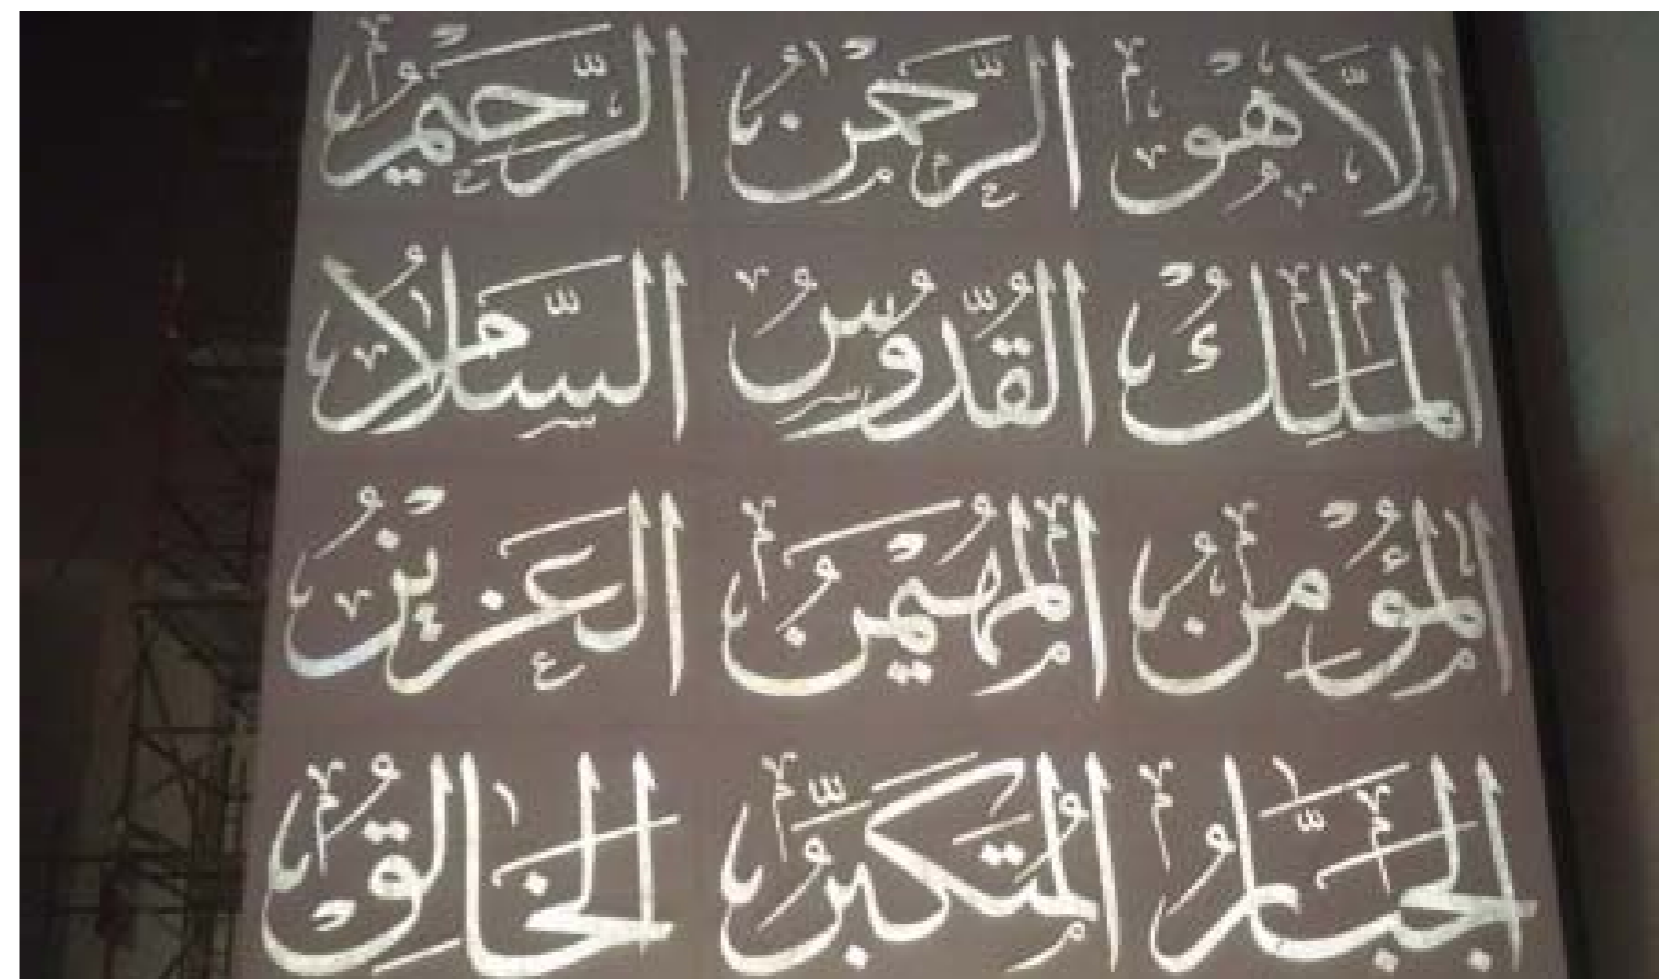 إِلَّا هُوَ الرَّحْمٰنُ الرَّحِيْمُ
الْمَلِكُ الْقُدُّوسُ السَّلَامُ
الْمُؤْمِنُ الْمُهَيْمِنُ الْعَزِيزُ
الْجَبَّارُ الْمُتَكَبِّرُ الْخَالِقُ